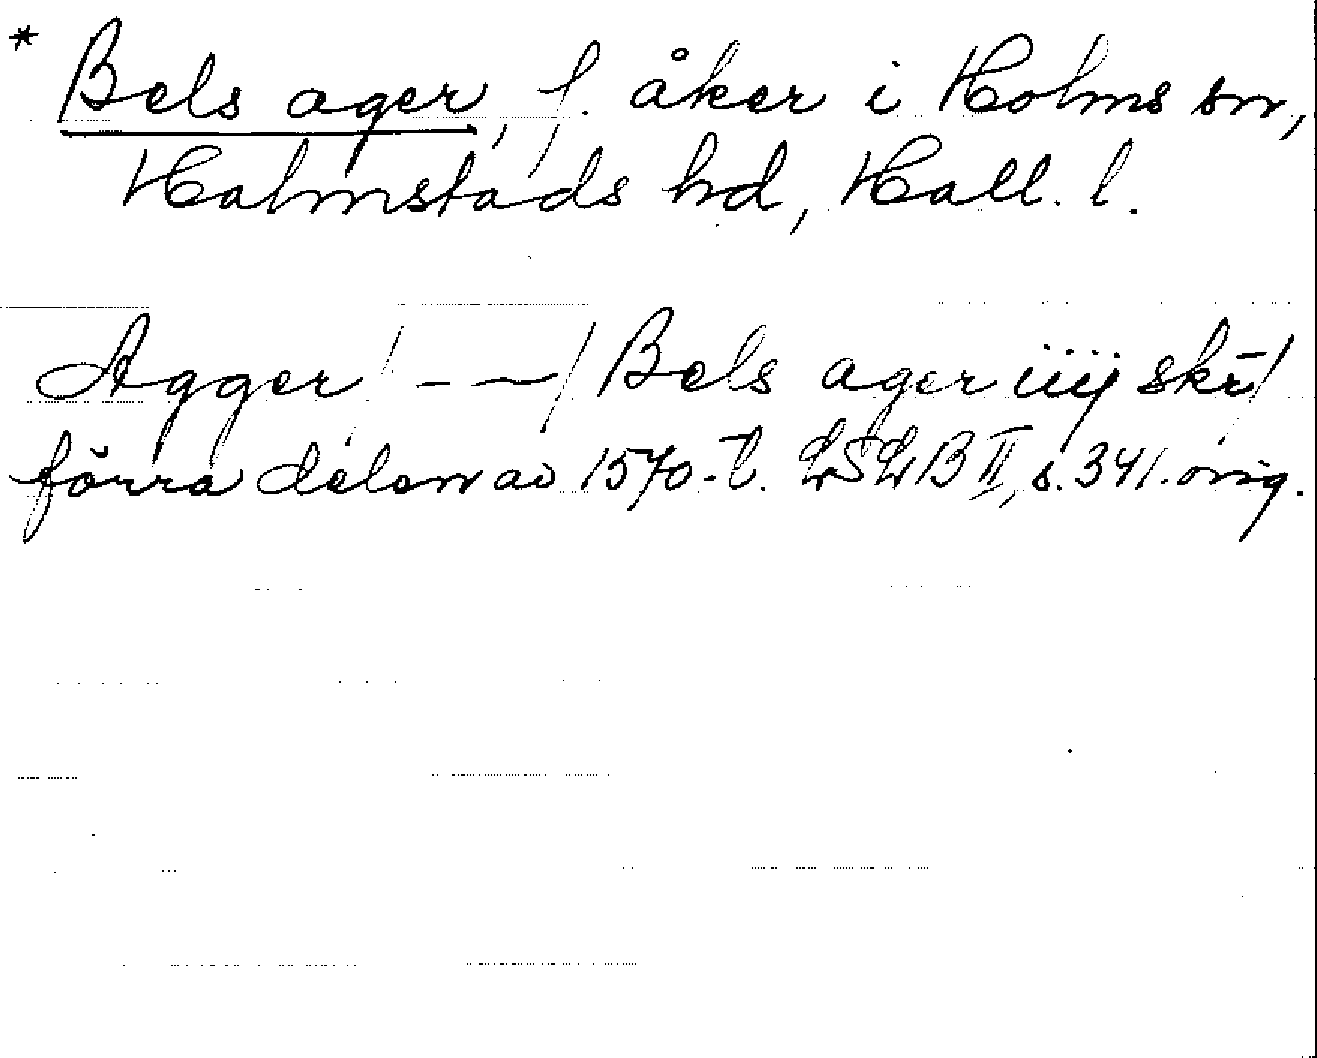 * Bels ager, f. åker i Holms sn,
Halmstads hd, Hall. l.
Agger / – – / Bels ager iiij skr̄ /
förra delen av 1570-t. LSLB II, s. 341. orig.